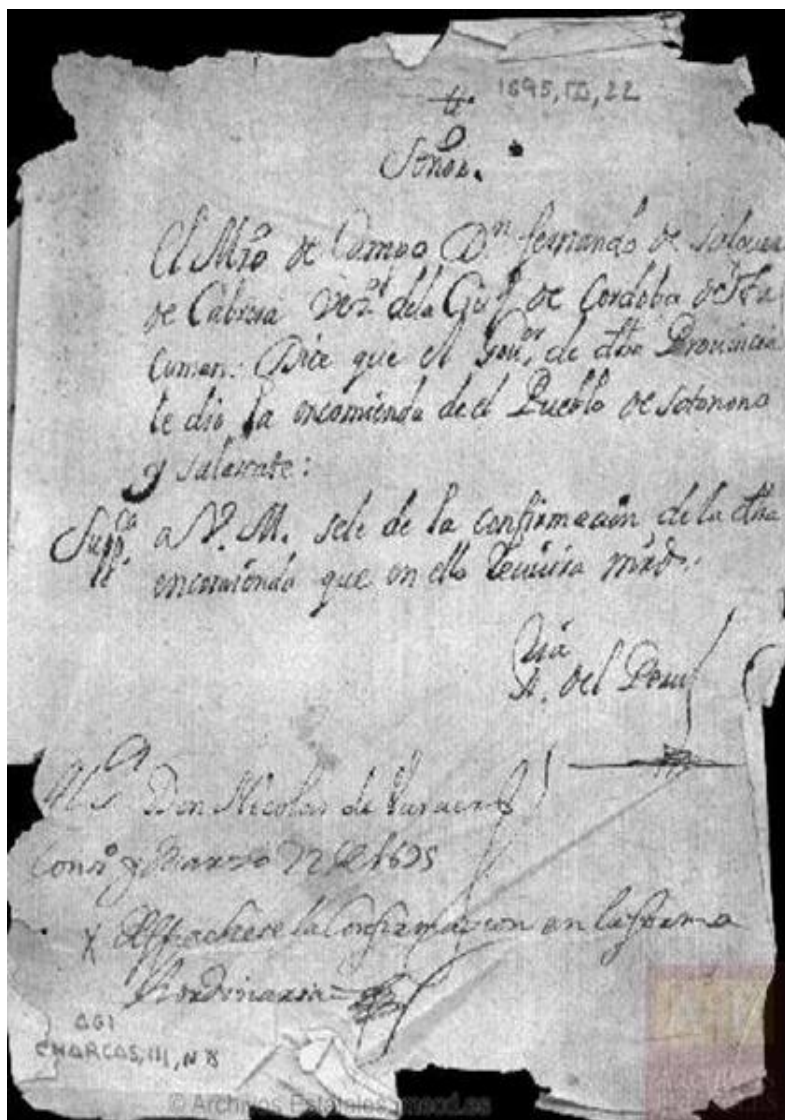 1695, III, 22
Señor.
El Mro de Campo Dn fernando de
de Cabrera Vezo de la Ciud de Cordoba de Tu
cuman: Dice que el Gouor, de dha Prouincia
le dio la encomienda de el Pueblo de sotonona
y salsacate:
Suppca a V. M. sele de la confirmacion de la dha
encomienda que en ello Receuira mrd.
del Peru
Don Nicolas de
Conso y Marzo 22 de 1695
Despachese la Confirmacion en la forma
hordinaria
AGI
CHARCAS, 111, N 8
© Archivos Estatales, mecd.es